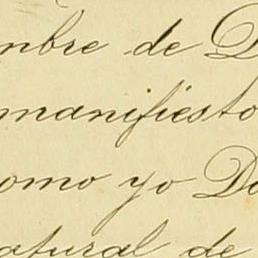 nbre de D
manifiesto
omo yo Do
atural de